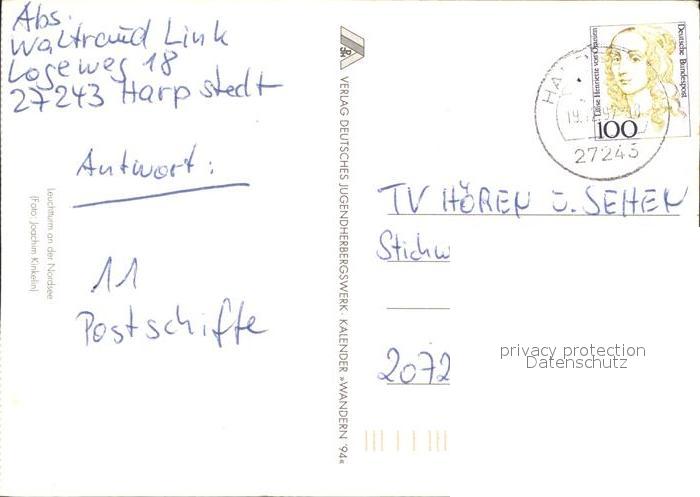 Abs.
Waltraud Link
Logeweg 18
27243 Harpstedt
Antwort:
11
Postschiffe
Leuchtturm an der Nordsee
(Foto: Joachim Kinkelin)
VERLAG DEUTSCHES JUGENDHERBERGSWERK · KALENDER »WANDERN '94«
Deutsche Bundespost
Luise Henriette von Oranien
100
27243
TV HÖREN U. SEHEN
Stichw
2072
privacy protection
Datenschutz